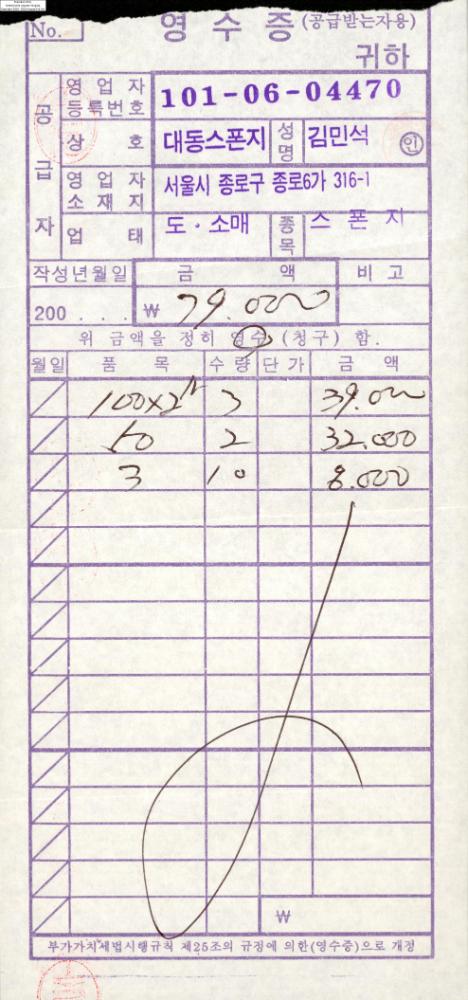 No.
영 수 증 (공급받는자용)
귀하
공급자
영 업 자 등록번호 101-06-04470
상 호 대동스폰지 성명 김민석 인
영 업 자 소 재 지 서울시 종로구 종로6가 316-1
업 태 도·소매 종목 스 폰 지
작성년월일 금 액 비 고
200 . . . ₩ 79.000
위 금액을 정히 영수 (청구) 함.
월일 품 목 수량 단가 금 액
3 39.000
50 2 32.000
3 10 8.000
₩
부가가치세법시행규칙 제25조의 규정에 의한(영수증)으로 개정